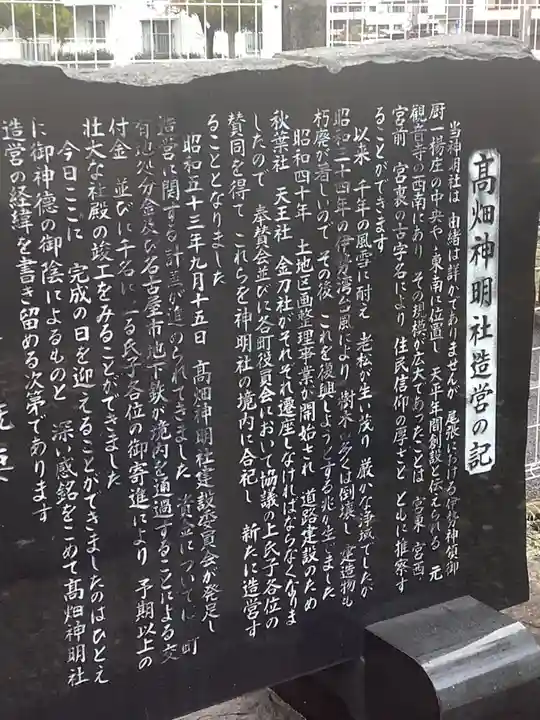 高畑神明社造営の記
当神明社は 由緒は詳かでありませんが 尾張における伊勢神領御
厨一楊庄の中央や〻東南に位置し 天正年間創設と伝えられる 元
観音寺の西南にあり その規模が広大であったことは 宮東 宮西
宮前 宮裏の古字名により 住民信仰の厚さと ともに推察す
ることができます
以来 千年の風雪に耐え 老松が生い茂り 厳かな浄域でしたが
昭和三十四年の伊勢湾台風により 樹木の多くは倒壊し 建造物も
朽廃が著しいので その後 これを復興しようとする兆が生じました
昭和四十年 土地区画整理事業が開始され 道路建設のため
秋葉社 天王社 金刀社がそれぞれ遷座しなければならなくなりま
したので 奉賛会並びに各町役員会において協議の上氏子各位の
賛同を得て これらを神明社の境内に合祀し 新たに造営す
ることとなりました
昭和五十三年九月十五日 髙畑神明社建設委員会が発足し
造営に関する計画が進められてきました 資金については 町
有地処分金及び名古屋市地下鉄が境内を通過することによる交
付金 並びに千名に る氏子各位の御寄進により 予期以上の
壮大な社殿の竣工をみることができました
今日ここに 完成の日を迎えることができましたのはひとえ
に御神徳の御陰によるものと 深い感銘をこめて髙畑神明社
造営の経緯を書き留める次第であります